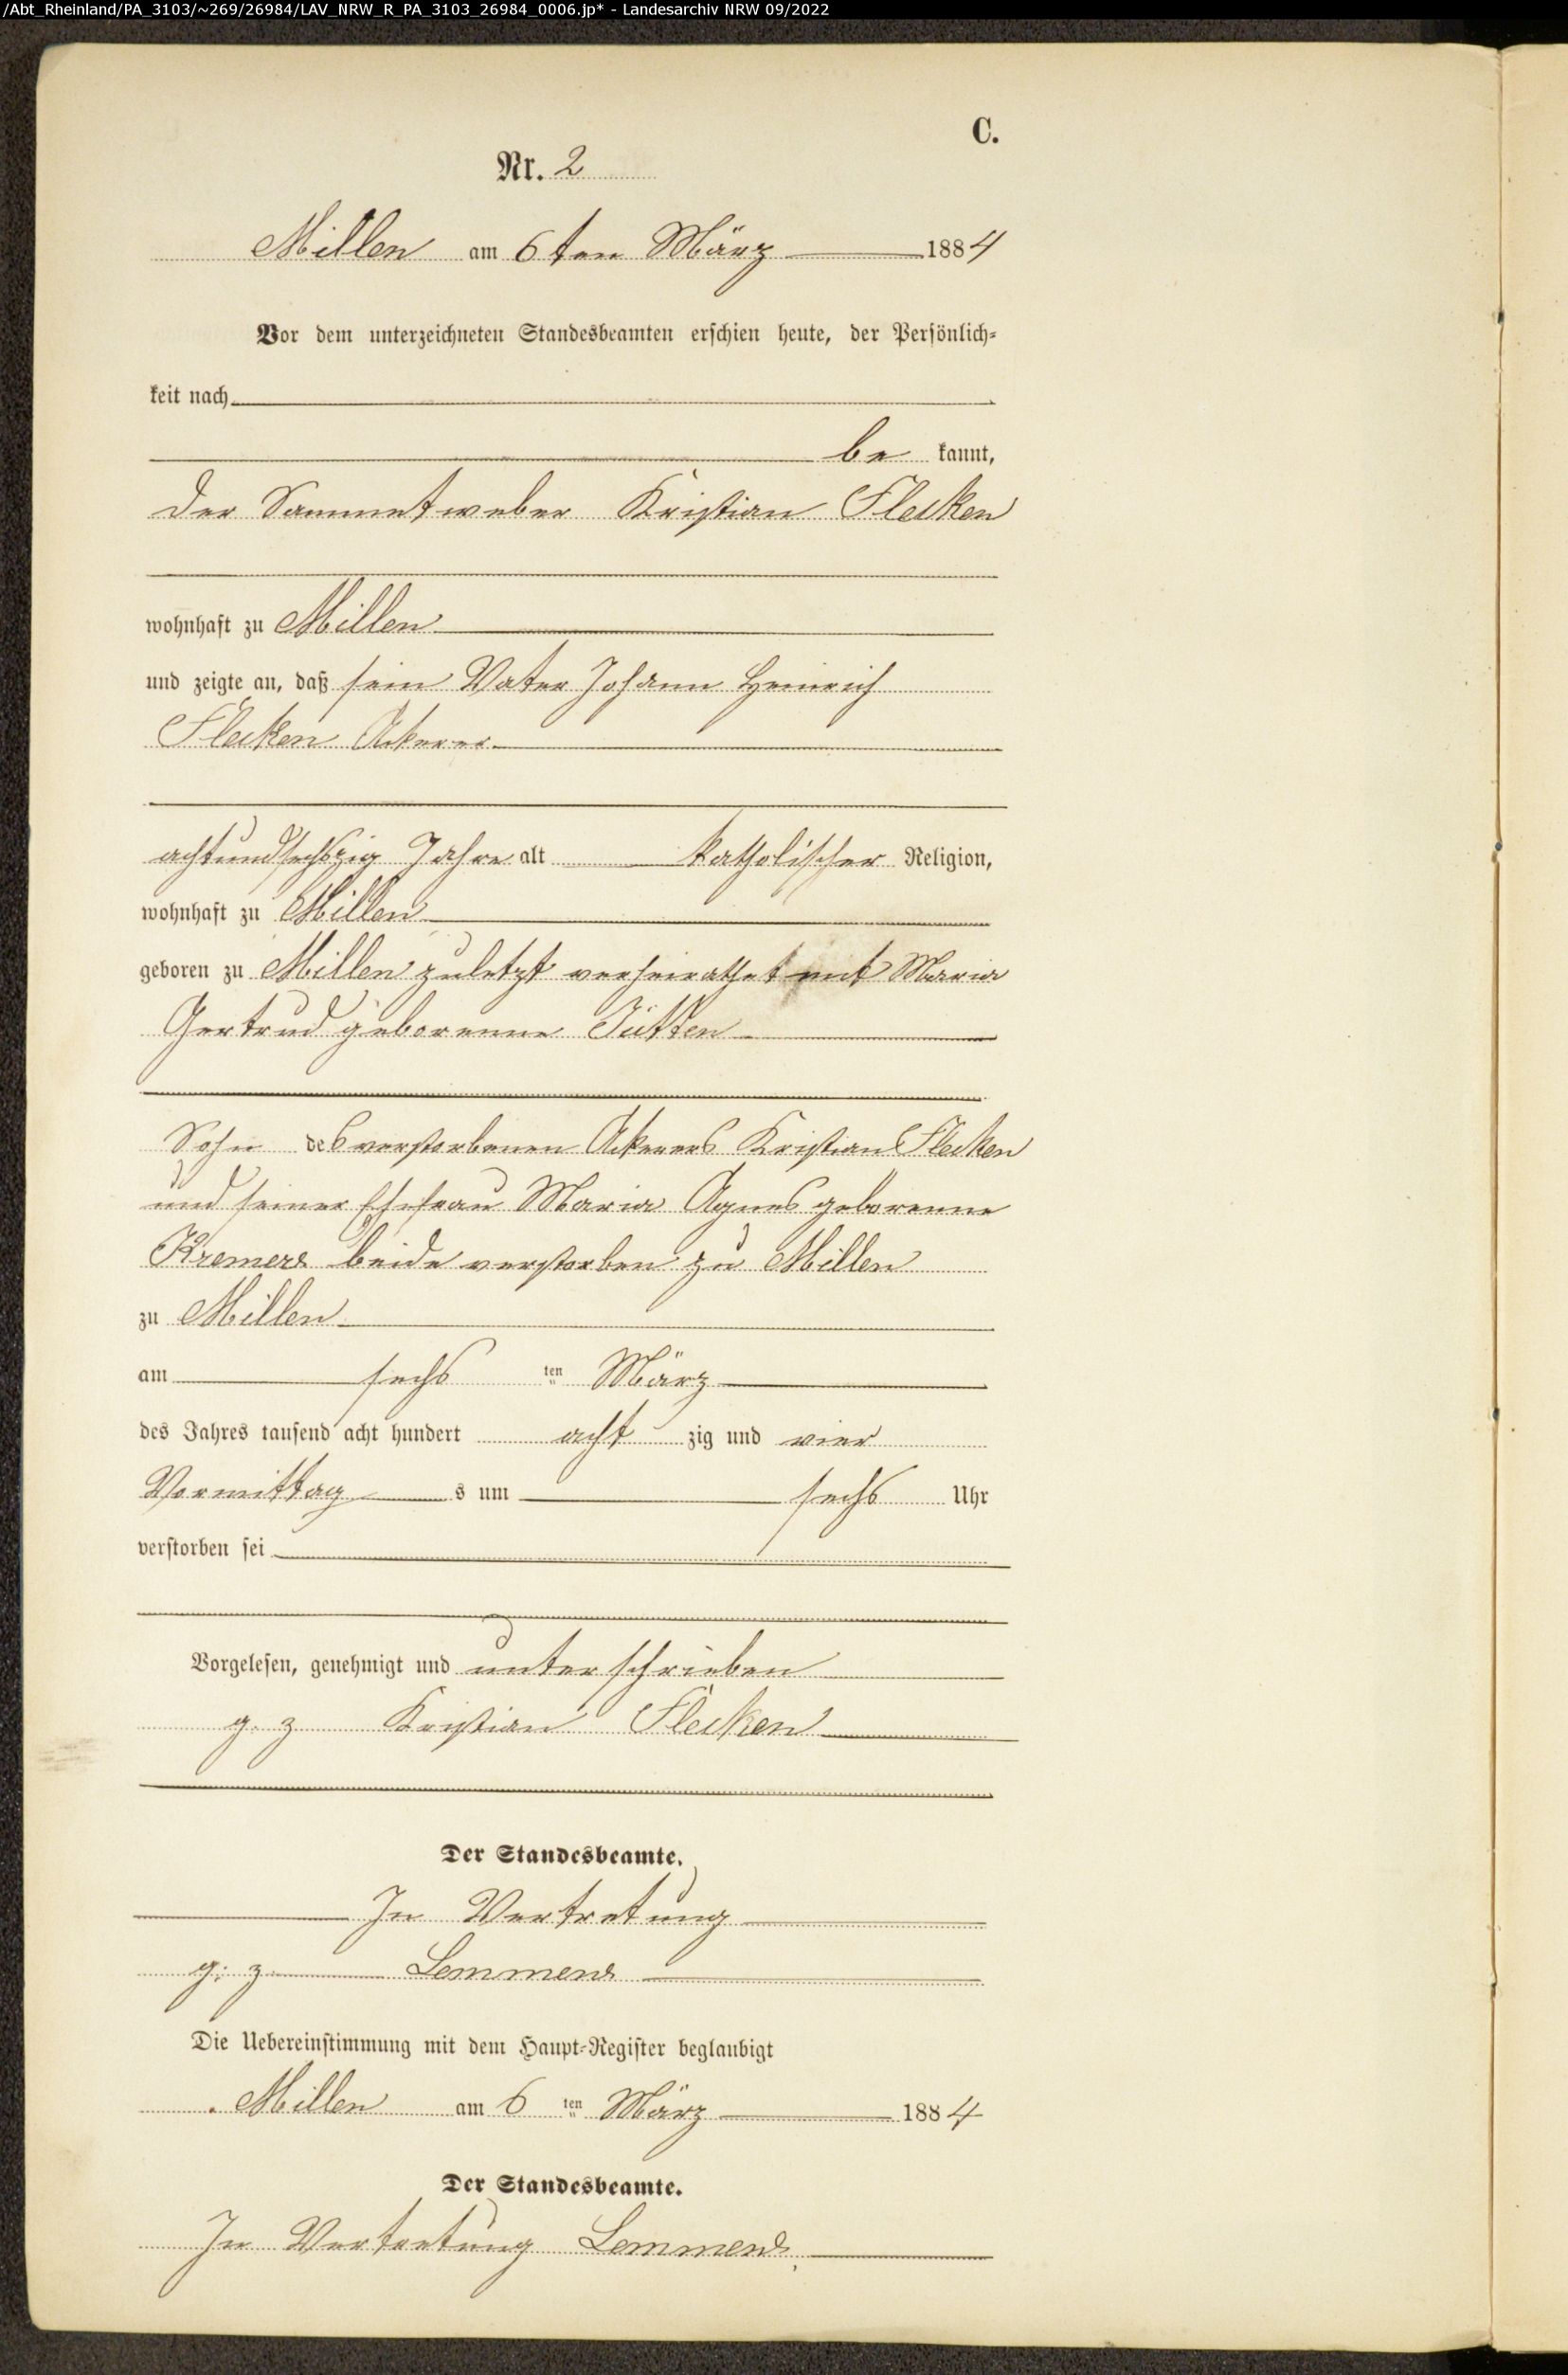 /Abt_Rheinland/PA_3103/~269/26984/LAV_NRW_R_PA_3103_26984_0006.jp* - Landesarchiv NRW 09/2022
C.
Nr. 2
Millen am 6ten März 1884
Vor dem unterzeichneten Standesbeamten erschien heute, der Persönlich-
keit nach
be kannt,
der Sammetweber Kristian Flecken
wohnhaft zu Millen
und zeigte an, daß sein Vater Johann Heinrich
Flecken Ackerer
achtundsechszig Jahre alt katholischer Religion,
wohnhaft zu Millen
geboren zu Millen zuletzt verheirathet mit Maria
Gertrud geborenne Jütten
Sohn des verstorbenen Ackerers Kristian Flecken
und seiner Ehefrau Maria Agnes geborenne
Kremers beide verstorben zu Millen
zu Millen
am sechs ten März
des Jahres tausend acht hundert acht zig und vier
Vormittag s um sechs Uhr
verstorben sei
Vorgelesen, genehmigt und unterschrieben
g. z Kristian Flecken
Der Standesbeamte.
In Vertretung
g. z. Lemmens
Die Uebereinstimmung mit dem Haupt-Register beglaubigt
Millen am 6 ten März 1884
Der Standesbeamte.
In Vertretung Lemmens.